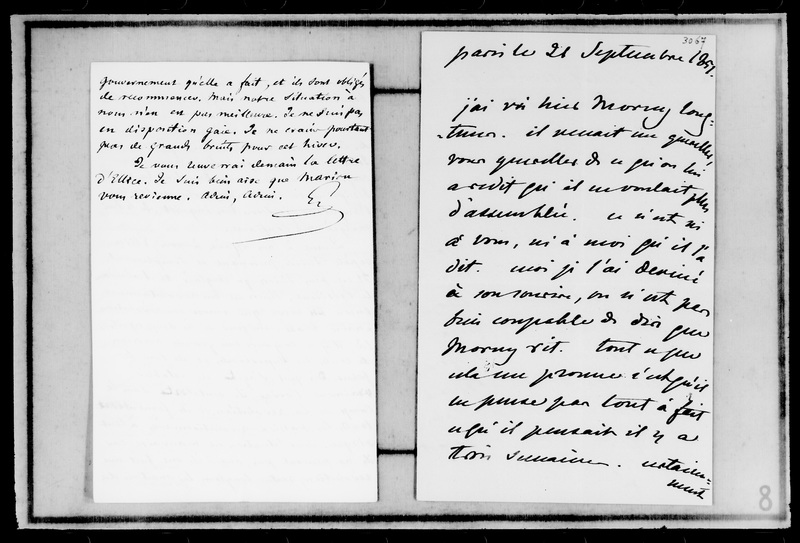 gouvernement qu'elle a fait, et ils sont obligés
de recommencer. Mais notre situation à
nous n'en est pas meilleure. Je ne suis pas
en disposition gaie. Je ne crains pourtant
pas de grands bruits pour cet hiver.
Je vous renverrai demain la lettre
d'Ellice. Je suis bien aise que Marion
vous revienne. Adieu, Adieu.
3067
paris le 21 Septembre 1851.
j'ai vu hier Morny long-
-tems. il venait me quereller,
vous quereller de ce qu'on lui
a redit qu'il ne voulait plus
d'assemblée. ce n'est ni
à vous, ni à moi qu'il l'a
dit. moi je l'ai deviné
à son sourire, on n'est pas
bien coupable de dire que
Morny rit. tout ce que
cela me prouve c'est qu'il
ne pense pas tout à fait
ce qu'il pensait il y a
trois semaines. notam-
ment
8